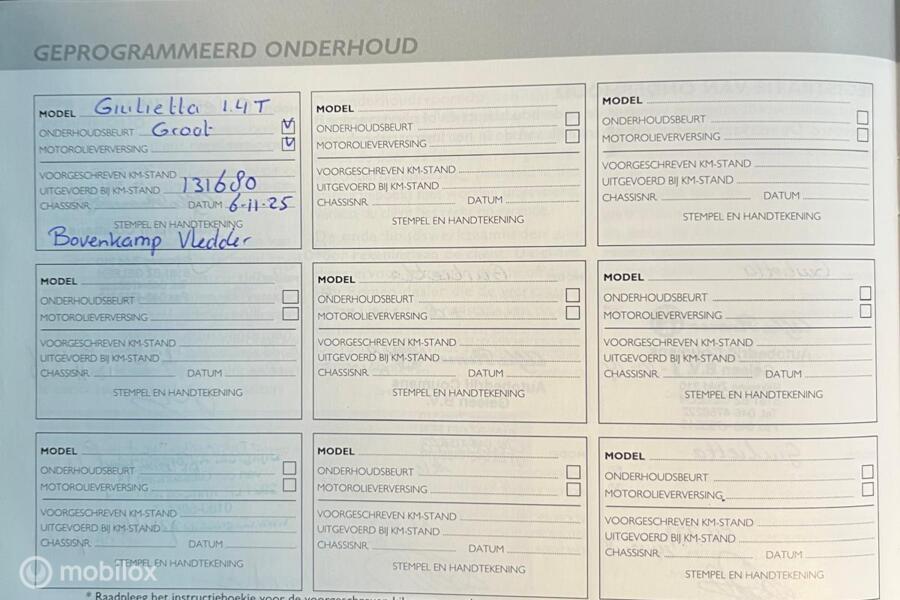 GEPROGRAMMEERD ONDERHOUD
MODEL Giulietta 1.4T
ONDERHOUDSBEURT Groot
MOTOROLIEVERVERSING
VOORGESCHREVEN KM-STAND
UITGEVOERD BIJ KM-STAND 131680
CHASSISNR. DATUM 6-11-25
STEMPEL EN HANDTEKENING
Bovenkamp Vledder
MODEL
ONDERHOUDSBEURT
MOTOROLIEVERVERSING
VOORGESCHREVEN KM-STAND
UITGEVOERD BIJ KM-STAND
CHASSISNR. DATUM
STEMPEL EN HANDTEKENING
MODEL
ONDERHOUDSBEURT
MOTOROLIEVERVERSING
VOORGESCHREVEN KM-STAND
UITGEVOERD BIJ KM-STAND
CHASSISNR. DATUM
STEMPEL EN HANDTEKENING
MODEL
ONDERHOUDSBEURT
MOTOROLIEVERVERSING
VOORGESCHREVEN KM-STAND
UITGEVOERD BIJ KM-STAND
CHASSISNR. DATUM
STEMPEL EN HANDTEKENING
MODEL
ONDERHOUDSBEURT
MOTOROLIEVERVERSING
VOORGESCHREVEN KM-STAND
UITGEVOERD BIJ KM-STAND
CHASSISNR. DATUM
STEMPEL EN HANDTEKENING
MODEL
ONDERHOUDSBEURT
MOTOROLIEVERVERSING
VOORGESCHREVEN KM-STAND
UITGEVOERD BIJ KM-STAND
CHASSISNR. DATUM
STEMPEL EN HANDTEKENING
MODEL
ONDERHOUDSBEURT
MOTOROLIEVERVERSING
VOORGESCHREVEN KM-STAND
UITGEVOERD BIJ KM-STAND
CHASSISNR. DATUM
STEMPEL EN HANDTEKENING
MODEL
ONDERHOUDSBEURT
MOTOROLIEVERVERSING
VOORGESCHREVEN KM-STAND
UITGEVOERD BIJ KM-STAND
CHASSISNR. DATUM
STEMPEL EN HANDTEKENING
MODEL
ONDERHOUDSBEURT
MOTOROLIEVERVERSING
VOORGESCHREVEN KM-STAND
UITGEVOERD BIJ KM-STAND
CHASSISNR. DATUM
STEMPEL EN HANDTEKENING
* Raadpleeg het instructieboekje voor de voorgeschreven
mobilox